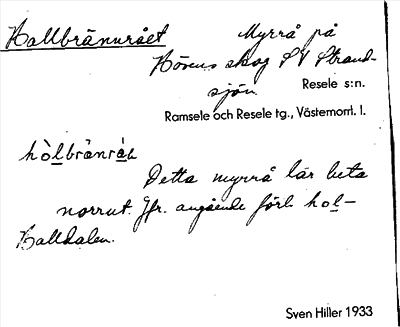 Hallbrännrået
Myrrå på
Hörens skog SV Strand-
sjön Resele s:n.
Ramsele och Resele tg., Västernorrl. l.
hòlbrànrà
Detta myrrå lär heta
norrut. Jfr. angående förl. hol-
Halldalen.
Sven Hiller 1933